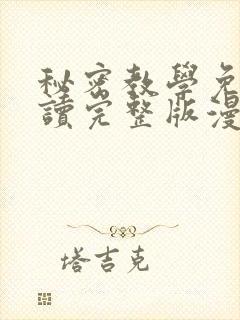 秘密教學免
讀完整版漫
塔吉克